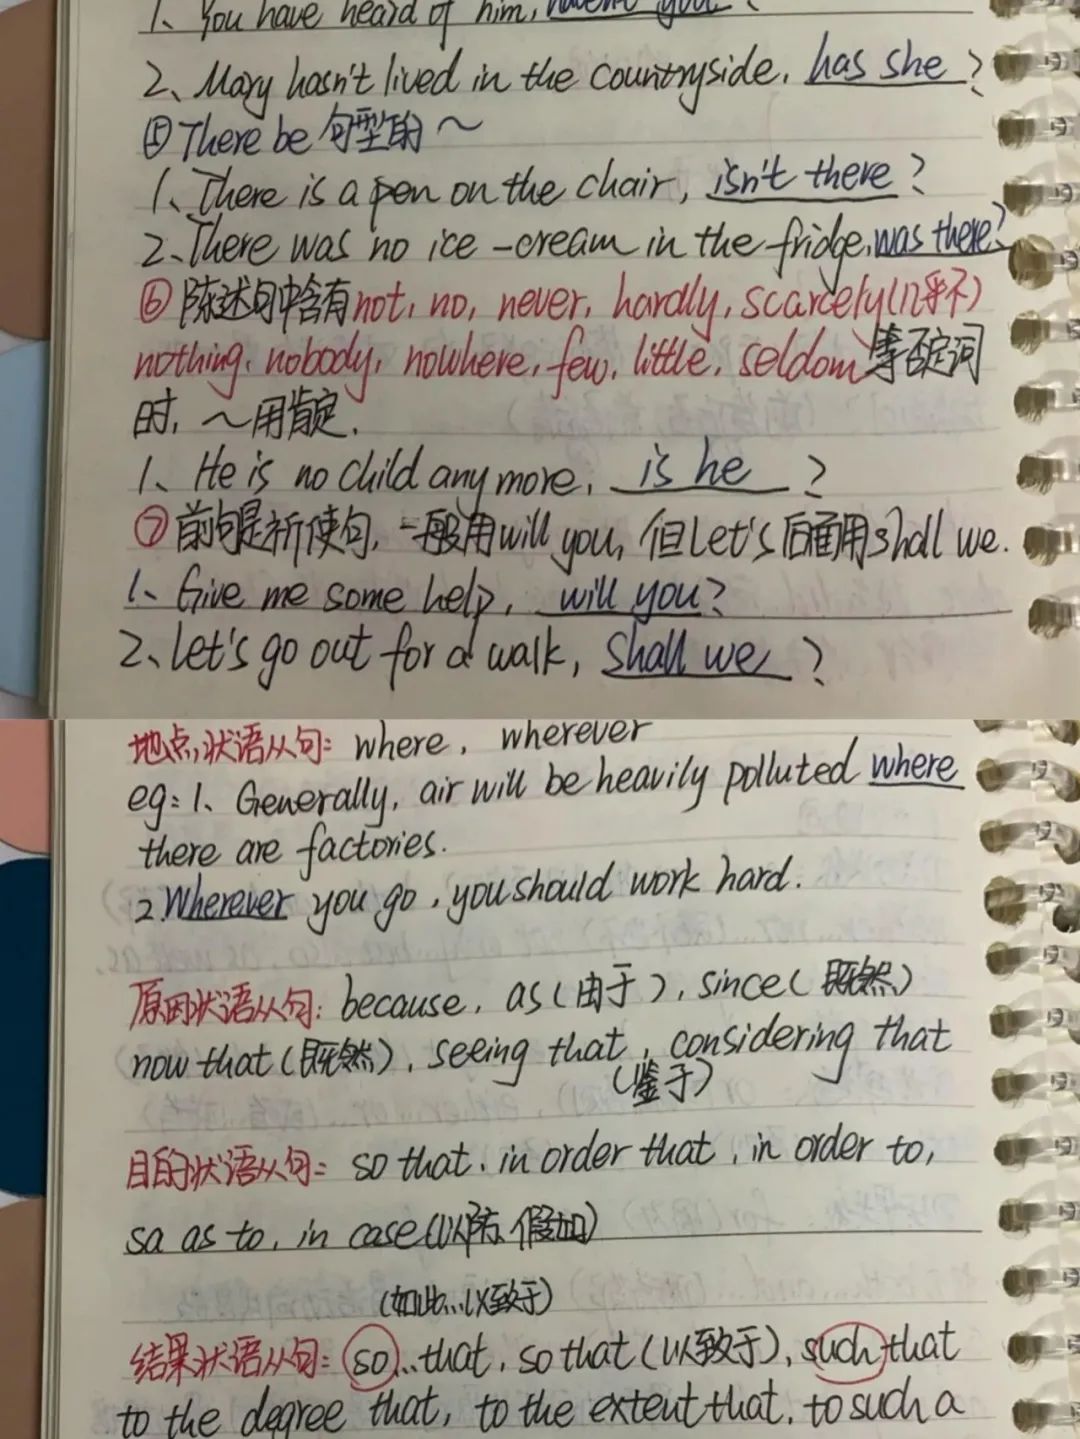 1、You have heard of him, haven't you ?
2、Mary hasn't lived in the countryside, has she ?
⑤There be 句型的～
1、There is a pen on the chair, isn't there ?
2、There was no ice-cream in the fridge, was there?
⑥陈述句中含有not, no, never, hardly, scarcely(几乎不)
nothing, nobody, nowhere, few, little, seldom等否定词
时, ～用肯定.
1、He is no child any more, is he ?
⑦前句是祈使句, 一般用will you, 但Let's 后通用shall we.
1、Give me some help, will you?
2、Let's go out for a walk, shall we ?
地点状语从句: where, wherever
eg: 1、Generally, air will be heavily polluted where
there are factories.
2 Wherever you go, you should work hard.
原因状语从句: because, as(由于), since(既然)
now that(既然), seeing that, considering that
(鉴于)
目的状语从句: so that, in order that, in order to,
sa as to, in case(以防, 假如)
(如此...以致于)
结果状语从句: so...that, so that(以致于), such that
to the degree that, to the extent that, to such a